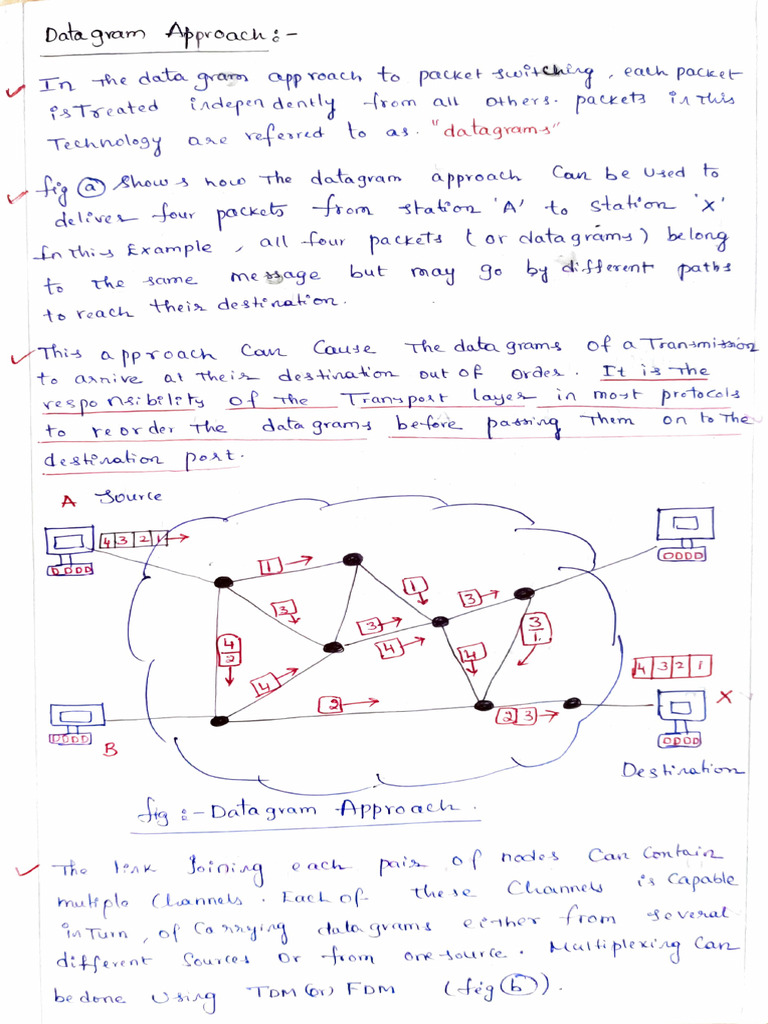 Datagram Approach:-
In the datagram approach to packet switching, each packet
is Treated independently from all others. packets in This
Technology are referred to as. "datagrams"
fig (a) shows how The datagram approach Can be used to
deliver four packets from station 'A' to station 'X'
In this Example, all four packets (or datagrams) belong
to the same message but may go by different paths
to reach their destination.
This approach Can Cause The datagrams of a Transmission
to arrive at Their destination out of order. It is The
responsibility of The Transport layer in most protocols
to reorder The datagrams before passing Them on to The
destination port.
A Source
4 3 2 1
1
1
3
3
3
4
4
4
2
4
3
1
4
2
2 3
4 3 2 1
X
B
Destination
fig :- Datagram Approach.
The link Joining each pair of nodes Can Contain
multiple Channels. Each of these Channels is Capable
in Turn, of Carrying datagrams either from several
different Sources or from one source. Multiplexing Can
be done Using TDM (or) FDM (fig (b)).